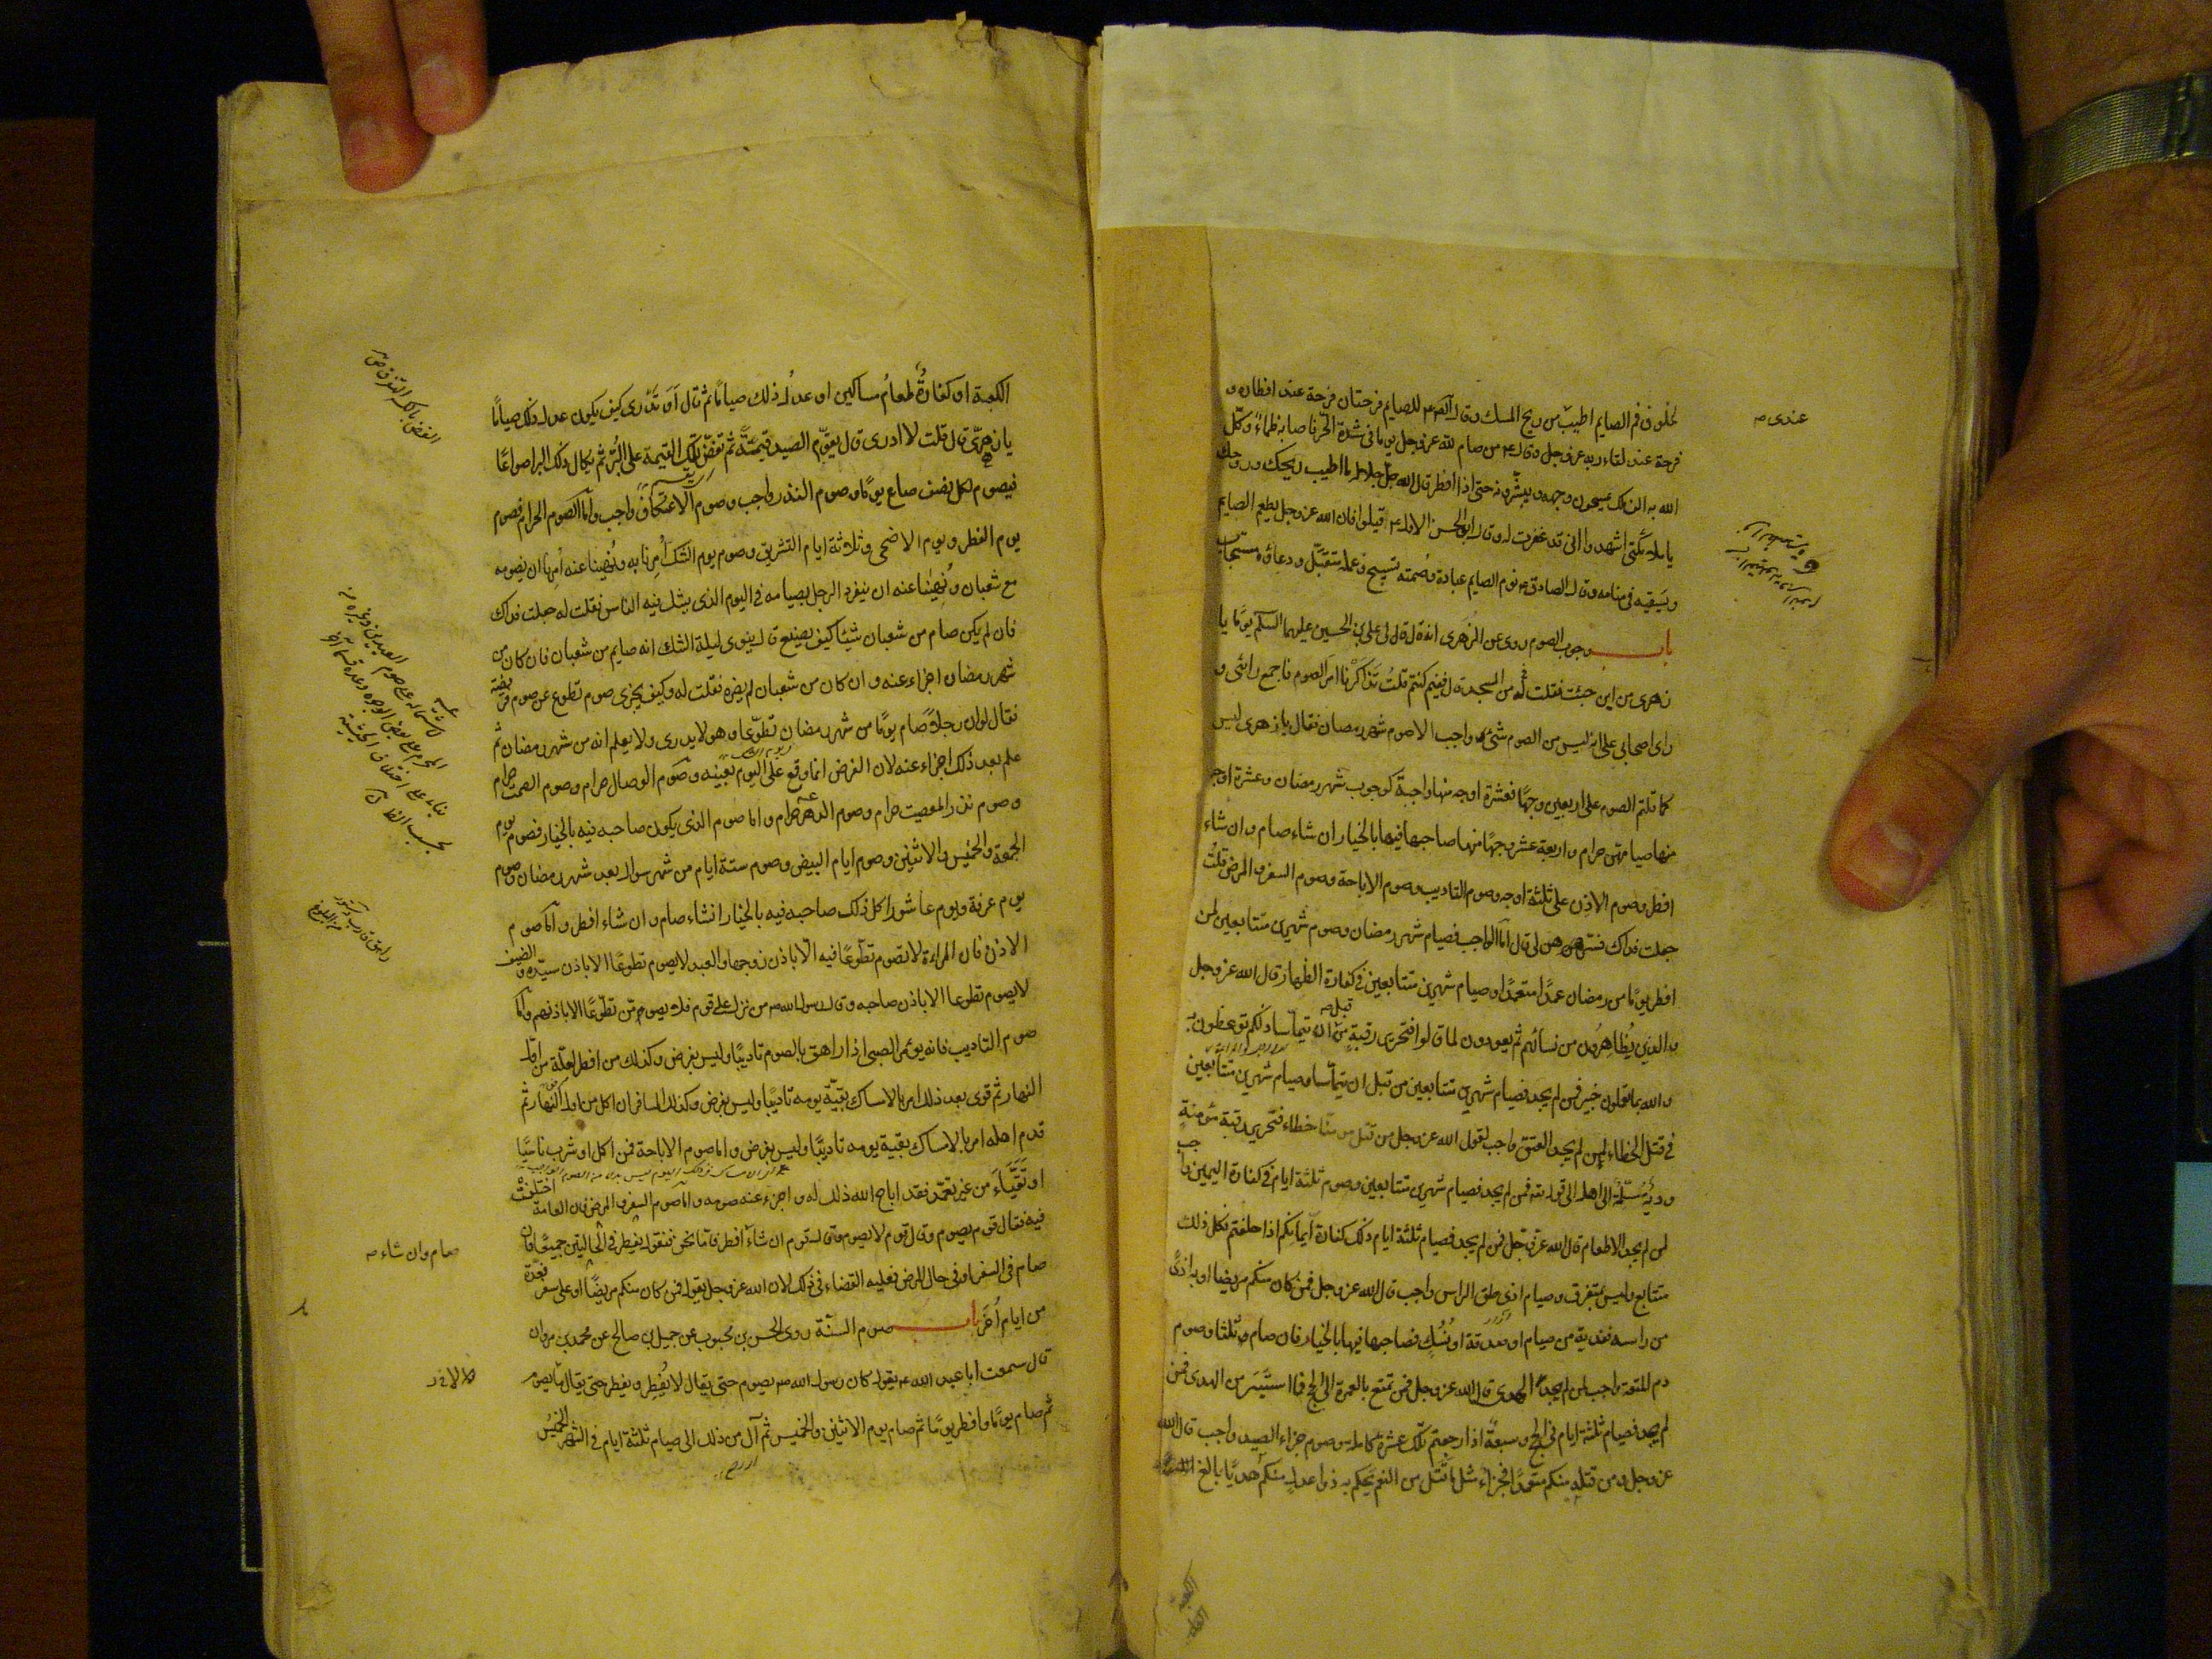 لخلوف فم الصايم اطيب من ريح المسك وقال للصايم فرحتان فرحة عند افطاره و
عندى
فرحة عند لقاء ربه عز وجل وقال من صام لله عز وجل يوما فى شدة الحر فاصابه ظماء وكل
الله به الف ملك يمسحون وجهه ويبشرونه حتى اذا افطر قال الله جل جلاله ما اطيب ريحك وروحك
يا ملائكتى اشهدوا انى قد غفرت له وقال ابو الحسن الاول قيلوا فان الله عز وجل يطعم الصايم
ويسقيه فى منامه وقال الصادق نوم الصايم عبادة وصمته تسبيح وعمله متقبل ودعاؤه مستجاب
باب وجوب الصوم روى عن الزهرى انه قال قال لى على بن الحسين عليهما السلم يوما يا
زهرى من اين جئت فقلت من المسجد قال ففيم كنتم قلت تذاكرنا امر الصوم فاجمع رائى و
راى اصحابى على انه ليس من الصوم شىء واجب الا صوم شهر رمضان فقال يا زهرى ليس
كما قلتم الصوم على اربعين وجها فعشرة اوجه منها واجبة كوجوب شهر رمضان وعشرة اوجه
منها صيامهن حرام واربعة عشر وجها منها صاحبها فيها بالخيار ان شاء صام وان شاء
افطر وصوم الاذن على ثلثة اوجه وصوم التاديب وصوم الاباحة وصوم السفر والمرض قلت
جعلت فداك فسرهن لى قال اما الواجب فصيام شهر رمضان وصوم شهرين متتابعين لمن
افطر يوما من رمضان عمدا متعمدا وصيام شهرين متتابعين فى كفارة الظهار قال الله عز وجل
والذين يظاهرون من نسائهم ثم يعودون لما قالوا فتحرير رقبة من قبل ان يتماسا ذلكم توعظون به
والله بما تعملون خبير فمن لم يجد فصيام شهرين متتابعين من قبل ان يتماسا وصيام شهرين متتابعين
فى قتل الخطاء لمن لم يجد العتق واجب لقول الله عز وجل من قتل مؤمنا خطاء فتحرير رقبة مؤمنة
ودية مسلمة الى اهله الى قوله فمن لم يجد فصيام شهرين متتابعين وصوم ثلثة ايام فى كفارة اليمين واجب
لمن لم يجد الاطعام قال الله عز وجل فمن لم يجد فصيام ثلثة ايام ذلك كفارة ايمانكم اذا حلفتم فكل ذلك
متتابع وليس بمتفرق وصيام اذى حلق الراس واجب قال الله عز وجل فمن كان منكم مريضا او به اذى
من راسه ففدية من صيام او صدقة او نسك فصاحبها فيها بالخيار فان صام صام ثلثا وصوم
دم المتعة واجب لمن لم يجد الهدى قال الله عز وجل فمن تمتع بالعمرة الى الحج فما استيسر من الهدى فمن
لم يجد فصيام ثلثة ايام فى الحج وسبعة اذا رجعتم تلك عشرة كاملة وصوم جزاء الصيد واجب قال الله
عز وجل ومن قتله منكم متعمدا فجزاء مثل ما قتل من النعم يحكم به ذوا عدل منكم هديا بالغ
الكعبة او كفارة طعام مساكين او عدل ذلك صياما ثم قال او تدرى كيف يكون عدل ذلك صياما
يا زهرى قال قلت لا ادرى قال يقوم الصيد قيمة ثم تفض تلك القيمة على البر ثم يكال ذلك البر اصواعا
فيصوم لكل نصف صاع يوما وصوم النذر واجب وصوم الاعتكاف واجب واما الصوم الحرام فصوم
يوم الفطر ويوم الاضحى وثلاثة ايام التشريق وصوم يوم الشك امرنا به ونهينا عنه امرنا ان نصومه
مع شعبان ونهينا عنه ان ينفرد الرجل بصيامه فى اليوم الذى يشك فيه الناس فقلت له جعلت فداك
فان لم يكن صام من شعبان شيئا كيف يصنع قال ينوى ليلة الشك انه صايم من شعبان فان كان من
شهر رمضان اجزاء عنه وان كان من شعبان لم يضره فقلت له وكيف يجزى صوم تطوع عن صوم فريضة
فقال لو ان رجلا صام يوما من شهر رمضان تطوعا وهو لا يدرى ولا يعلم انه من شهر رمضان ثم
علم بعد ذلك اجزاء عنه لان الفرض انما وقع على اليوم بعينه وصوم الوصال حرام وصوم الصمت حرام
وصوم نذر المعصية حرام وصوم الدهر حرام واما صوم الذى يكون صاحبه فيه بالخيار فصوم يوم
الجمعة والخميس والاثنين وصوم ايام البيض وصوم ستة ايام من شهر شوال بعد شهر رمضان وصوم
يوم عرفة ويوم عاشورا كل ذلك صاحبه فيه بالخيار ان شاء صام وان شاء افطر واما صوم
الاذن فان المراءة لا تصوم تطوعا الا باذن زوجها والعبد لا يصوم تطوعا الا باذن سيده والضيف
لا يصوم تطوعا الا باذن صاحبه وقال رسول الله من نزل على قوم فلا يصومن تطوعا الا باذنهم واما
صوم التاديب فانه يؤمر الصبى اذا راهق بالصوم تاديبا وليس بفرض وكذلك من افطر لعلة من اول
النهار ثم قوى بعد ذلك امر بالامساك بقية يومه تاديبا وليس بفرض وكذلك المسافر ان اكل من اول النهار ثم
قدم اهله امر بالامساك بقية يومه تاديبا وليس بفرض واما صوم الاباحة فمن اكل او شرب ناسيا
او تقيأ من غير تعمد فقد اباح الله ذلك له واجزء عنه صومه واما صوم السفر والمرض فان العامة اختلفت
فيه فقال قوم يصوم وقال قوم لا يصوم وقال قوم ان شاء افطر فاما نحن فنقول يفطر فى الحالتين جميعا فان
صام وان شاء
صام فى السفر او فى حال المرض فعليه القضاء فى ذلك لان الله عز وجل يقول فمن كان منكم مريضا او على سفر فعدة
من ايام اخر باب صوم السنة روى الحسن بن محبوب عن جميل بن صالح عن محمد بن مروان
قال سمعت ابا عبد الله يقول كان رسول الله يصوم حتى يقال لا يفطر ويفطر حتى يقال لا يصوم
ثم صام يوما وافطر يوما ثم صام يوم الاثنين والخميس ثم آل من ذلك الى صيام ثلثة ايام فى الشهر الخميس